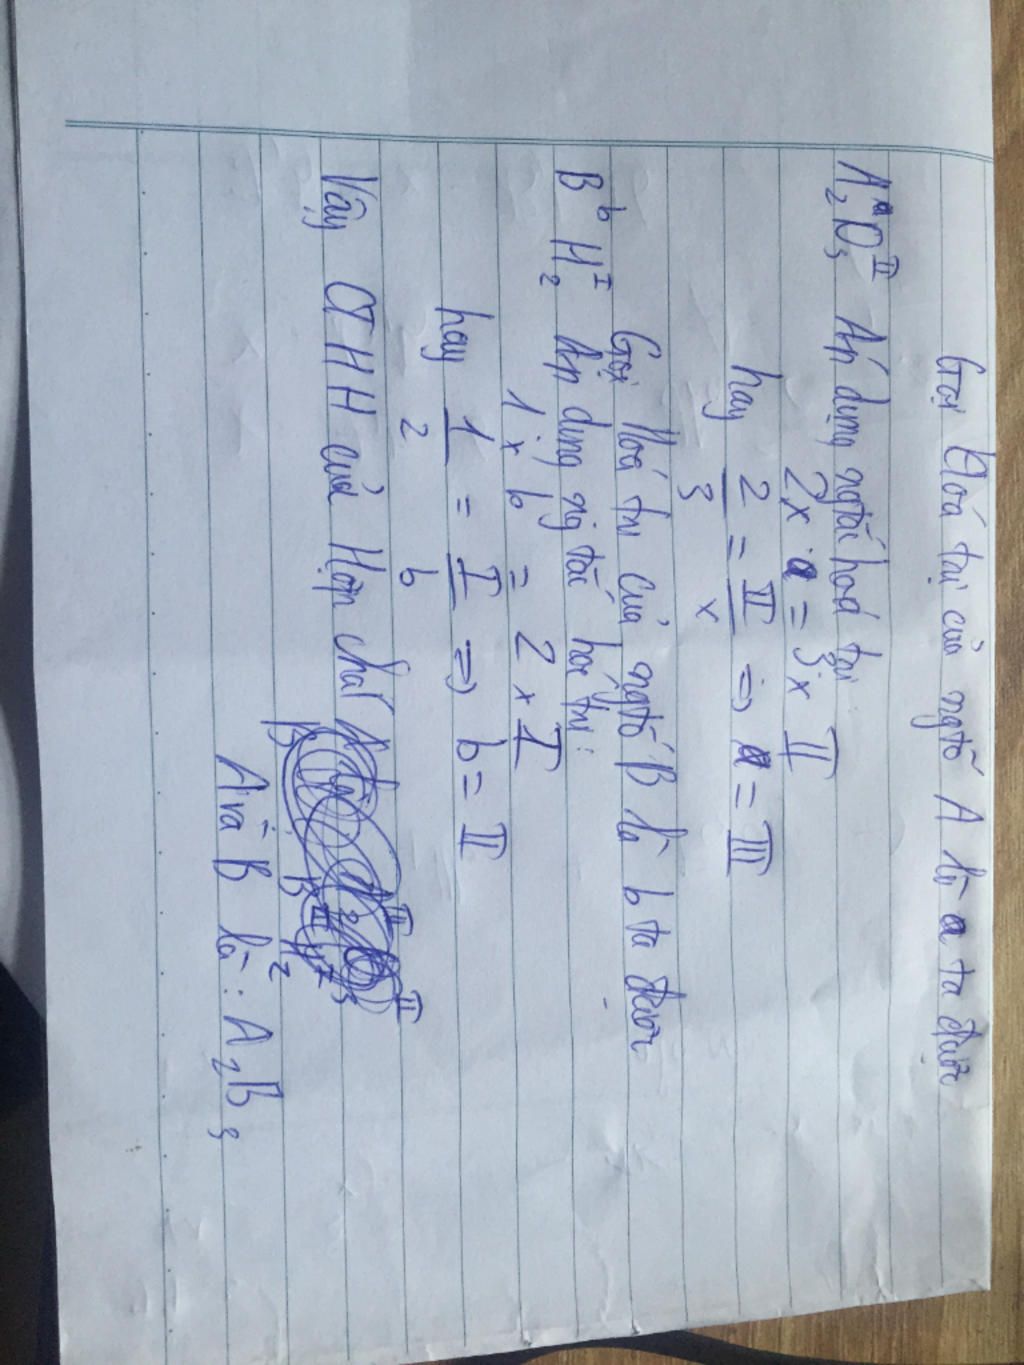 Gọi Hoá trị của ngtố A là a ta được
A₂ᵃO₃ᴵᴵ Áp dụng ngtắc hoá trị
2 x a = 3 x II
hay 2/3 = II/x => a = III
Gọi Hoá trị của ngtố B là b ta được
BᵇH₂ᴵ Áp dụng ng tắc hoá trị:
1 x b = 2 x I
hay 1/2 = I/b => b = II
Vậy CTHH của Hợp chất
A và B là: A₂B₃